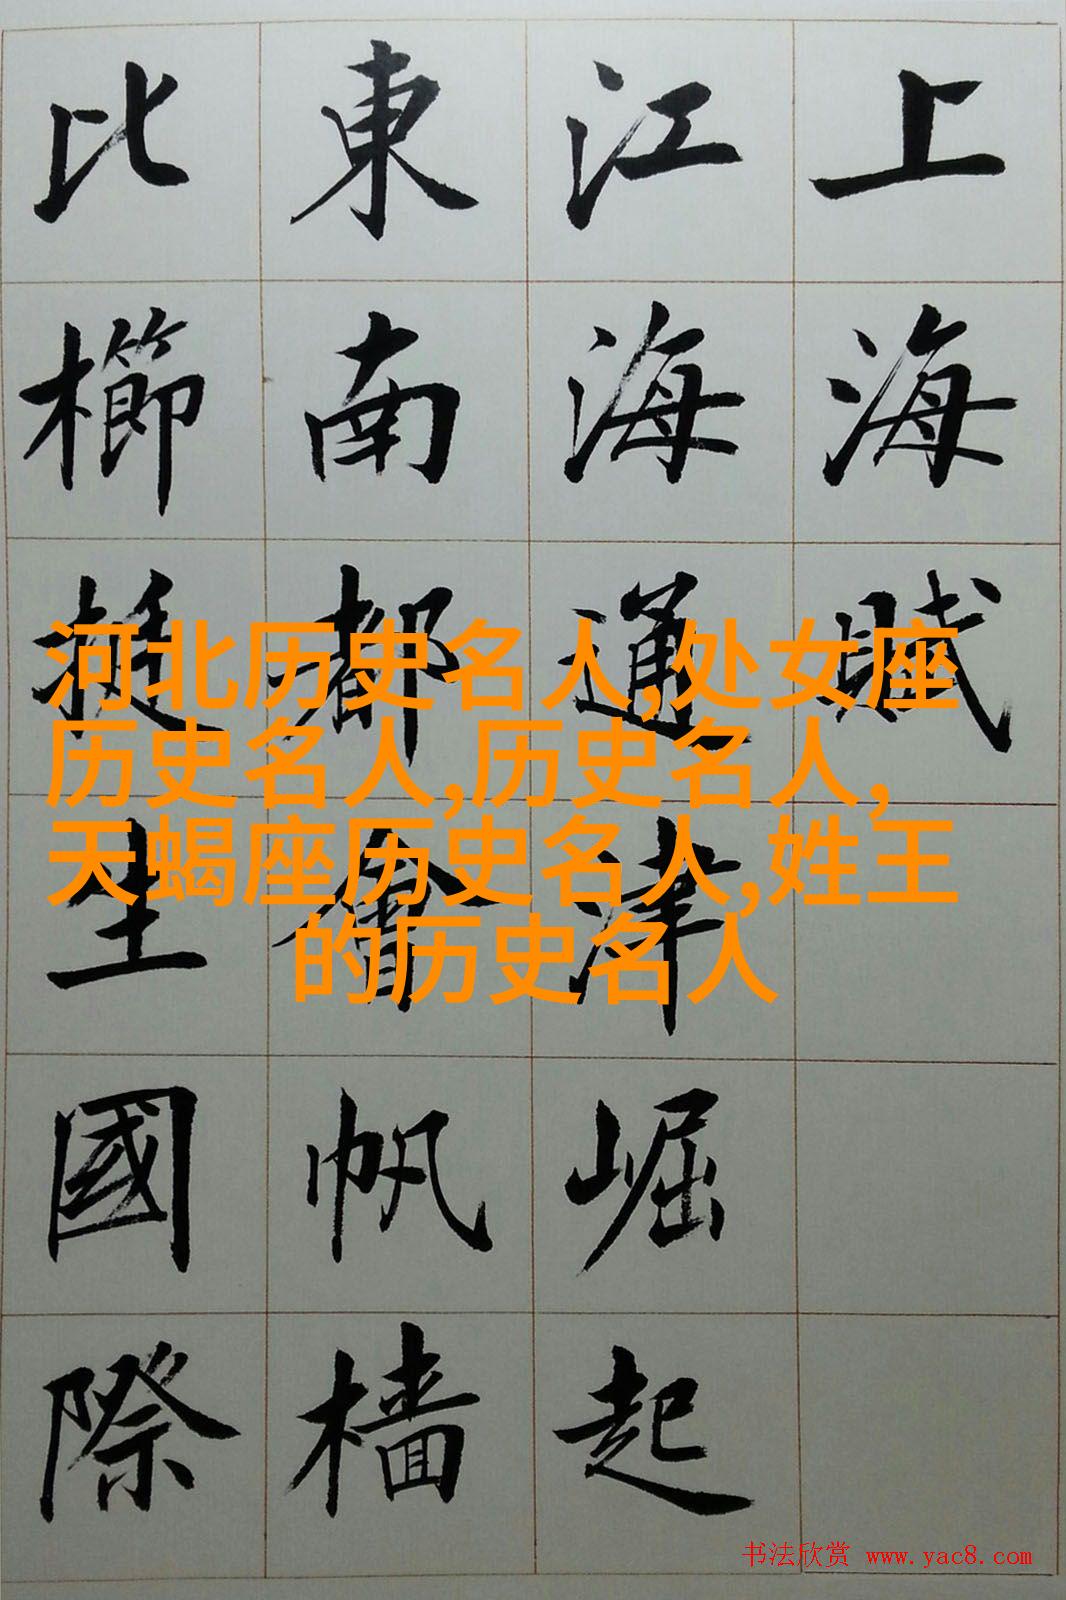 上海賦
江海通津崛起
東南都會帆樯
比櫛挺生國際
河北历史名人,处女座
历史名人,历史名人,
天蝎座历史名人,姓王
的历史名人
书法欣赏 www.yac8.com